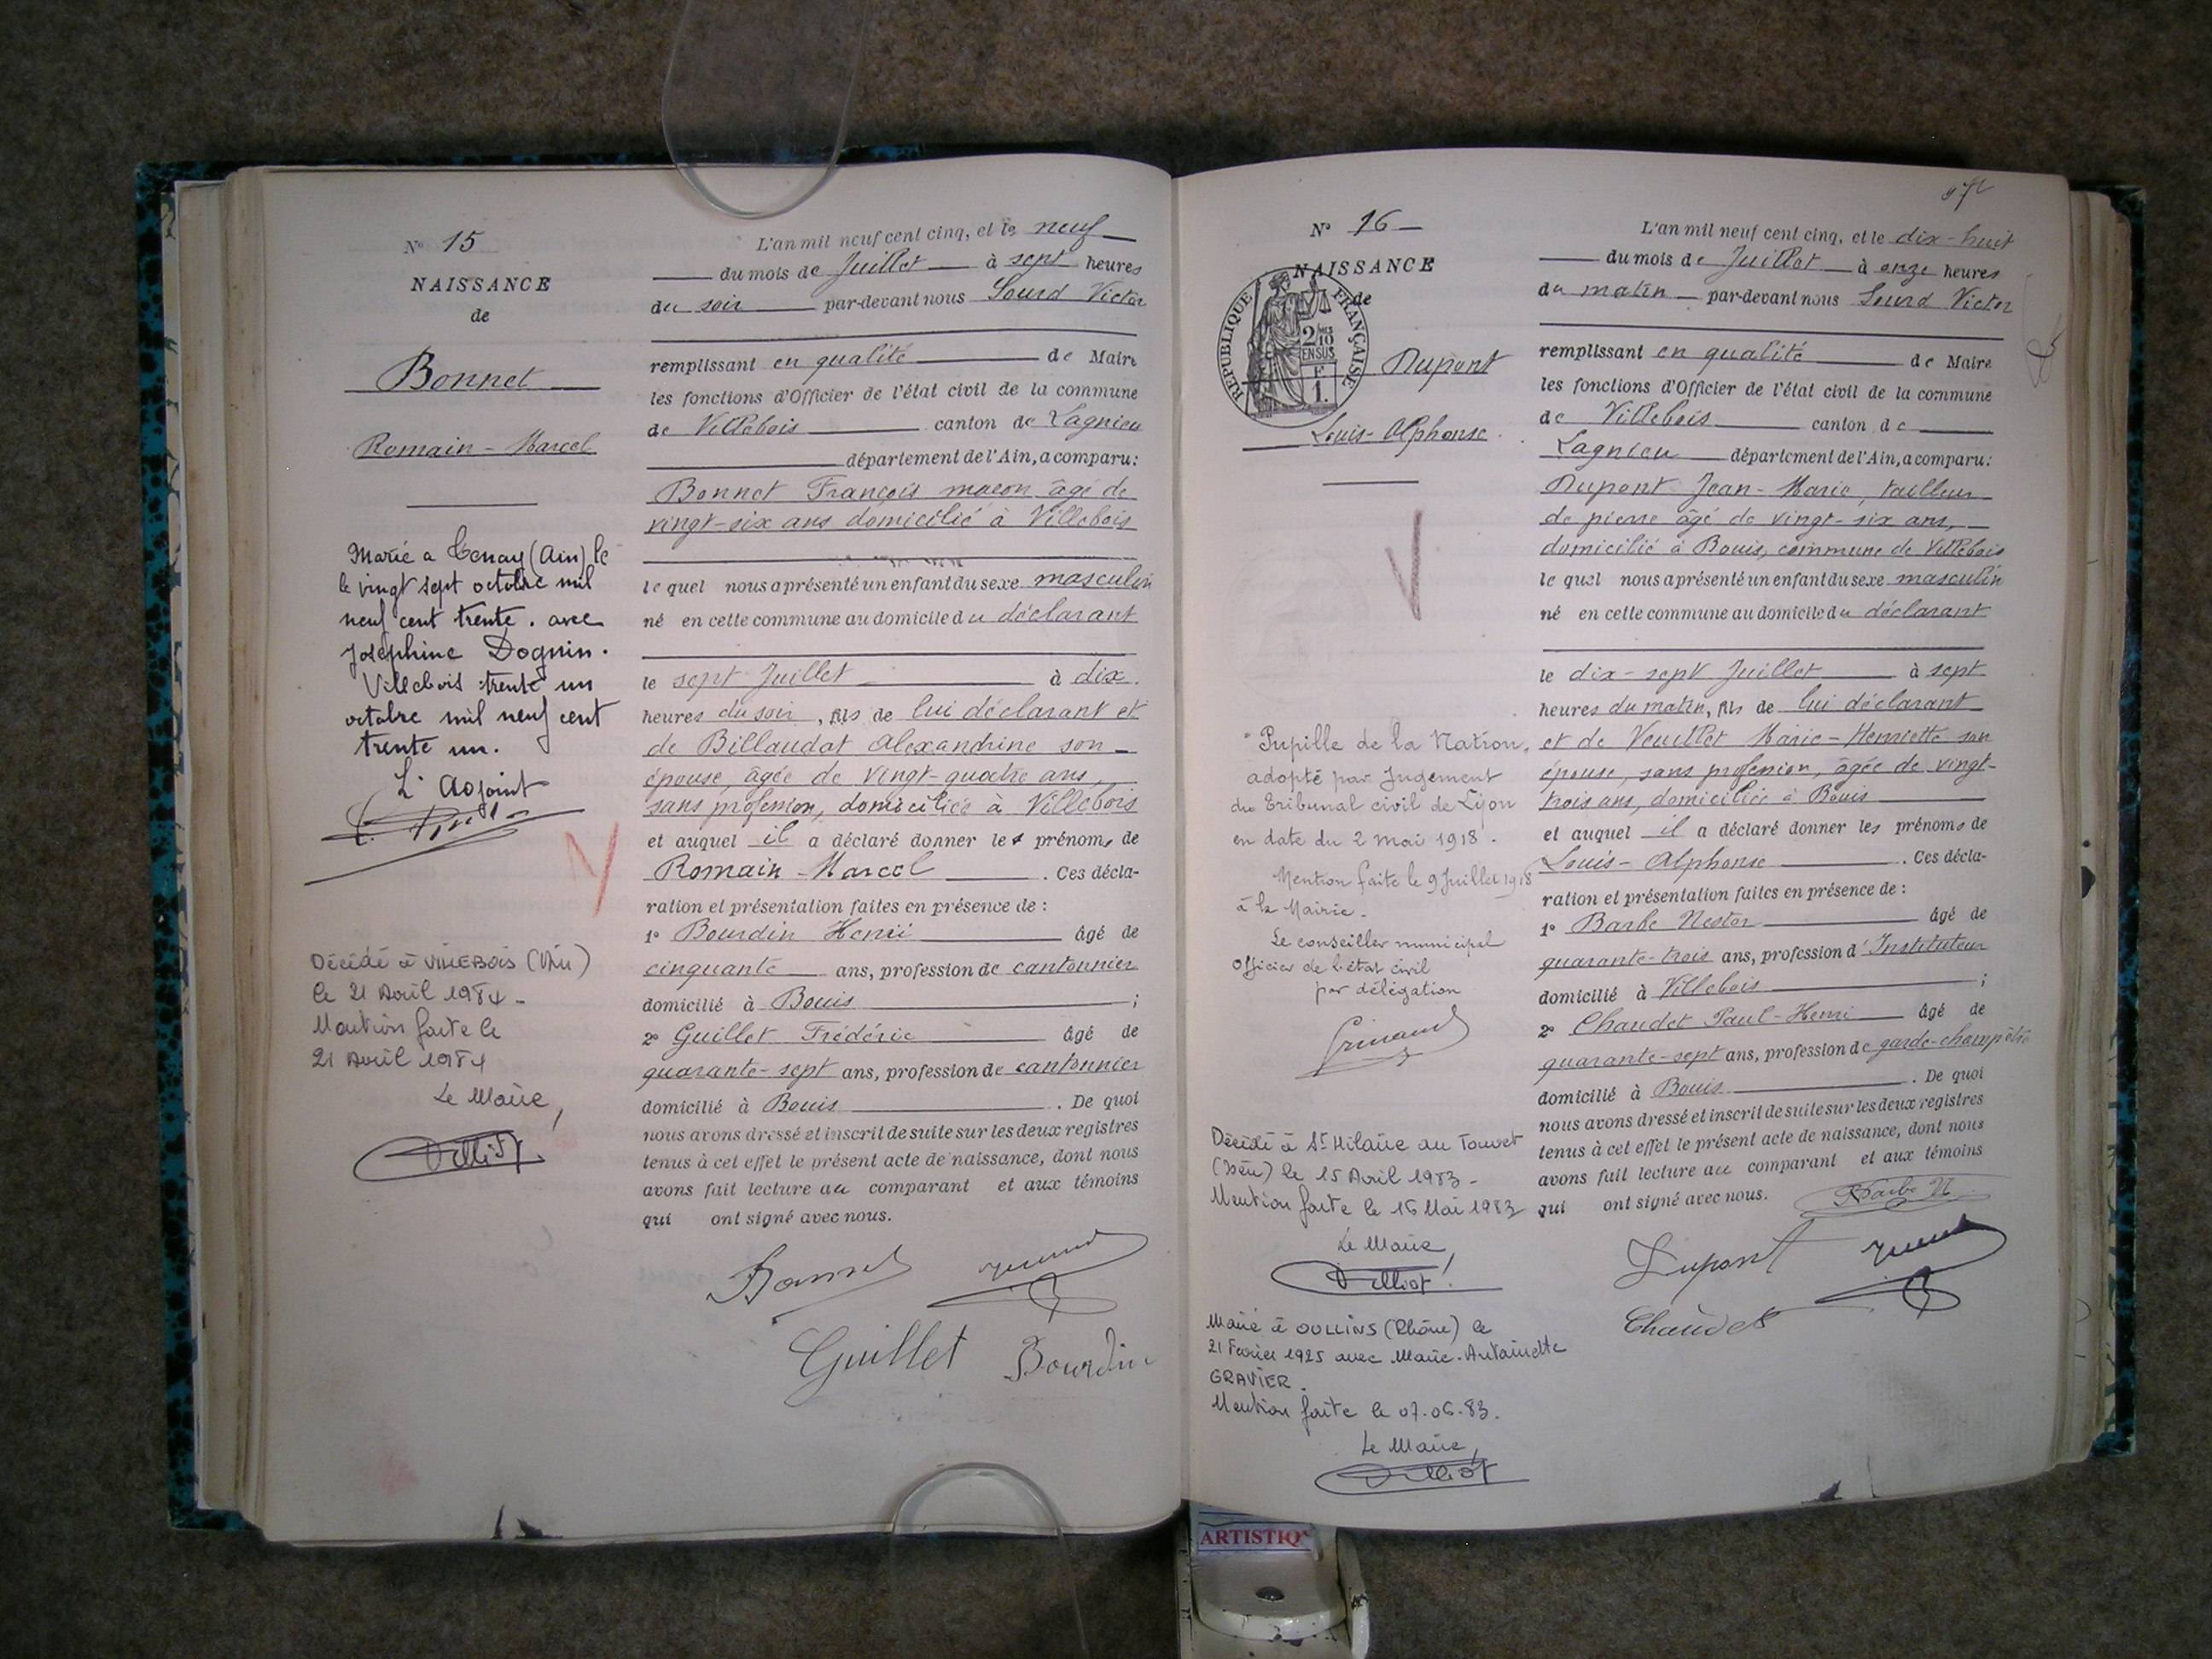 N° 15
NAISSANCE
de
Bonnet
Romain - Marcel
Marié a Tenay (Ain) le
le vingt sept octobre mil
neuf cent trente . avec
Joséphine Dognin .
Villebois trente un
octobre mil neuf cent
trente un.
L' Adjoint
Décédé à VILLEBOIS (Ain)
le 21 Avril 1984 -
Mention faite le
21 Avril 1984
Le Maire,
L'an mil neuf cent cinq, et le neuf
du mois de Juillet à sept heures
du soir par-devant nous Sourd Victor
remplissant en qualité de Maire
les fonctions d'Officier de l'état civil de la commune
de Villebois canton de Lagnieu
département de l'Ain, a comparu :
Bonnet François maçon âgé de
vingt-six ans domicilié à Villebois
le quel nous a présenté un enfant du sexe masculin
né en cette commune au domicile du déclarant
le sept Juillet à dix
heures du soir, fils de lui déclarant et
de Billaudat Alexandrine son
épouse, âgée de vingt-quatre ans,
sans profession, domiciliée à Villebois
et auquel il a déclaré donner les prénoms de
Romain - Marcel . Ces décla-
ration et présentation faites en présence de :
1° Bourdin Henri âgé de
cinquante ans, profession de cantonnier
domicilié à Bouis ;
2° Guillet Frédéric âgé de
quarante-sept ans, profession de cantonnier
domicilié à Bouis . De quoi
nous avons dressé et inscrit de suite sur les deux registres
tenus à cet effet le présent acte de naissance, dont nous
avons fait lecture au comparant et aux témoins
qui ont signé avec nous.
Bonnet
Guillet Bourdin
N° 16
NAISSANCE
de
REPUBLIQUE FRANÇAISE
2/10 EN SUS
F 1.
Dupont
Louis-Alphonse
Pupille de la Nation,
adopté par Jugement
du Tribunal civil de Lyon
en date du 2 mai 1918 .
Mention faite le 9 Juillet 1918
à la Mairie.
Le conseiller municipal
officier de l'état civil
par délégation
Décédé à St Hilaire du Touvet
(Isère) le 15 Avril 1983 -
Mention faite le 16 Mai 1983
Le Maire,
Marié à OULLINS (Rhône) le
21 Février 1925 avec Marie-Antoinette
GRAVIER.
Mention faite le 07.06.83.
Le Maire,
L'an mil neuf cent cinq, et le dix-huit
du mois de Juillet à onze heures
du matin par-devant nous Sourd Victor
remplissant en qualité de Maire
les fonctions d'Officier de l'état civil de la commune
de Villebois canton de
Lagnieu département de l'Ain, a comparu :
Dupont Jean-Marie, tailleur
de pierre âgé de vingt-six ans,
domicilié à Bouis, commune de Villebois
le quel nous a présenté un enfant du sexe masculin
né en cette commune au domicile du déclarant
le dix-sept Juillet à sept
heures du matin, fils de lui déclarant
et de Veuillet Marie-Henriette son
épouse, sans profession, âgée de vingt-
trois ans, domiciliée à Bouis
et auquel il a déclaré donner les prénoms de
Louis-Alphonse . Ces décla-
ration et présentation faites en présence de :
1° Barbe Nestor âgé de
quarante-trois ans, profession d'Instituteur
domicilié à Villebois ;
2° Chaudet Paul-Henri âgé de
quarante-sept ans, profession de garde-champêtre
domicilié à Bouis . De quoi
nous avons dressé et inscrit de suite sur les deux registres
tenus à cet effet le présent acte de naissance, dont nous
avons fait lecture au comparant et aux témoins
qui ont signé avec nous. Barbe N
Dupont
Chaudet
ARTISTIQ